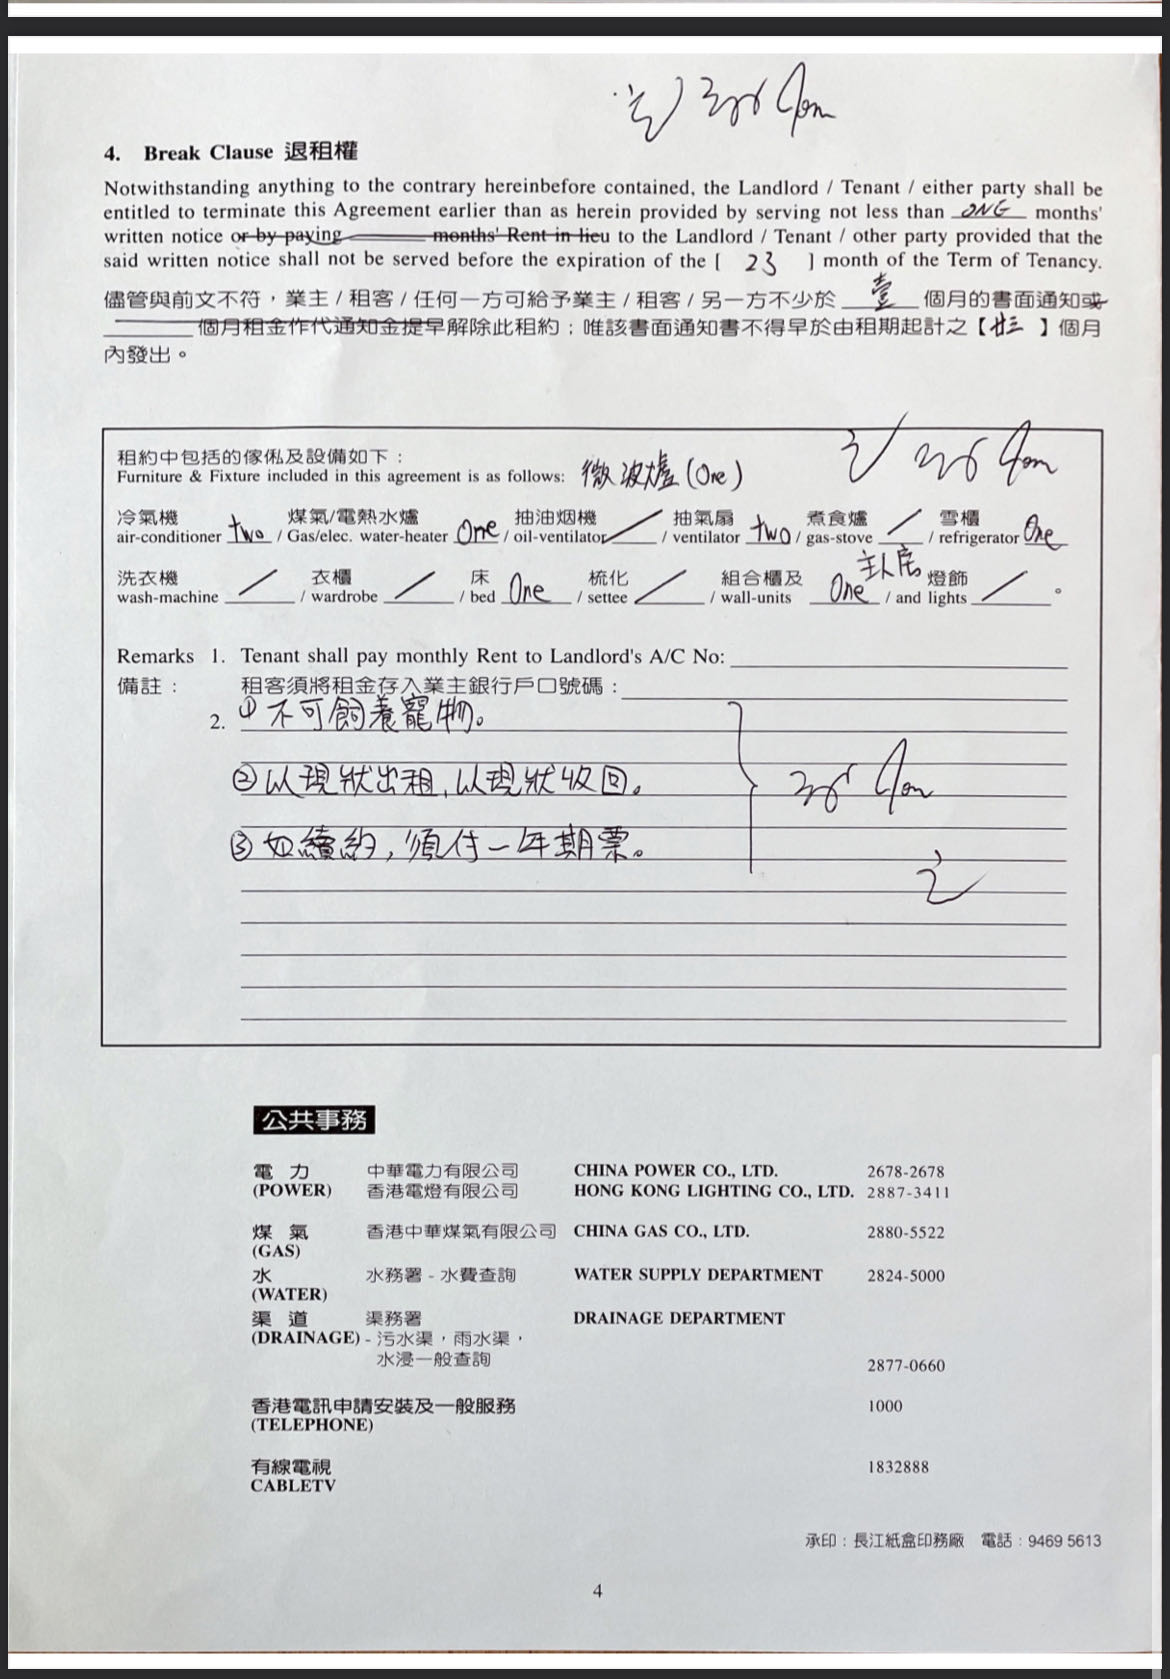 4. Break Clause 退租權
Notwithstanding anything to the contrary hereinbefore contained, the Landlord / Tenant / either party shall be
entitled to terminate this Agreement earlier than as herein provided by serving not less than ONE months'
written notice or by paying ______ months' Rent in lieu to the Landlord / Tenant / other party provided that the
said written notice shall not be served before the expiration of the [ 23 ] month of the Term of Tenancy.
儘管與前文不符，業主 / 租客 / 任何一方可給予業主 / 租客 / 另一方不少於 壹 個月的書面通知或
______個月租金作代通知金提早解除此租約；唯該書面通知書不得早於由租期起計之【廿三】個月
內發出。
租約中包括的傢俬及設備如下：
Furniture & Fixture included in this agreement is as follows: 微波爐(One)
冷氣機 煤氣/電熱水爐 抽油烟機 抽氣扇 煮食爐 雪櫃
air-conditioner two / Gas/elec. water-heater One / oil-ventilator / / ventilator two / gas-stove / / refrigerator One
洗衣機 衣櫃 床 梳化 組合櫃及 主人房 燈飾
wash-machine / / wardrobe / / bed One / settee / / wall-units One / and lights / 。
Remarks 1. Tenant shall pay monthly Rent to Landlord's A/C No:
備註： 租客須將租金存入業主銀行戶口號碼：
2. ①不可飼養寵物。
②以現狀出租,以現狀收回。
③如續約,須付一年期票。
公共事務
電力 中華電力有限公司 CHINA POWER CO., LTD. 2678-2678
(POWER) 香港電燈有限公司 HONG KONG LIGHTING CO., LTD. 2887-3411
煤氣 香港中華煤氣有限公司 CHINA GAS CO., LTD. 2880-5522
(GAS)
水 水務署 - 水費查詢 WATER SUPPLY DEPARTMENT 2824-5000
(WATER)
渠道 渠務署 DRAINAGE DEPARTMENT
(DRAINAGE) - 污水渠，雨水渠，
水浸一般查詢 2877-0660
香港電訊申請安裝及一般服務 1000
(TELEPHONE)
有線電視 1832888
CABLETV
承印：長江紙盒印務廠 電話：9469 5613
4